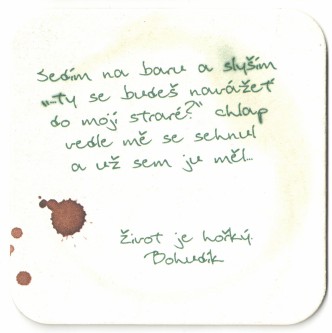 Sedím na baru a slyším
"...ty se budeš navážeť
do mojí straré?" chlap
vedle mě se sehnul
a už sem ju měl...
život je hořký.
Bohudík